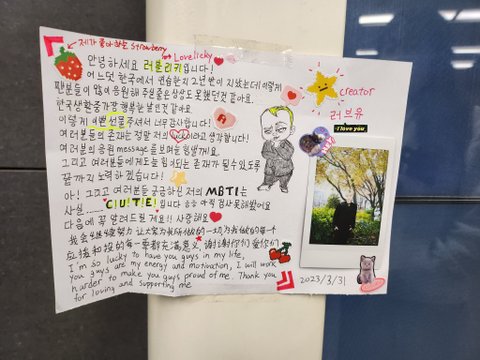 제가 좋아하는 Strawberry
Lovelicky
안녕하세요 러블리키입니다!
어느덧 한국에서 연습한지 2년 반이 지났는데 이렇게
팬분들이 많이 응원해 주실줄은 상상도 못했던것 같아요.
한국생활중 가장 행복한 날인것 같아요
이렇게 예쁜 선물 주셔서 너무 감사합니다!
여러분들의 존재는 정말 저의 lucky라고 생각합니다!
여러분의 응원 message를 보며 눈
그리고 여러분들에게도 늘 힘이되는 존재가 될수 있도록
끝까지 노력하겠습니다!
아! 그리고 여러분들 궁금하신 저의 MBTI는
사실...... CUTE! 입니다 ㅎㅎ 아직 검사 못해봤어요
다음에 꼭 알려드릴게요!! 사랑해요
我会继续努力 让大家为我所做的一切为我做的每个
应援和投的每一票都充满意义, 谢谢你们 爱你们
I'm so lucky to have you guys in my life,
you guys are my energy and motivation, I will work
harder to make you guys proud of me. Thank you
for loving and supporting me
creator
러브유
I love you
2023/3/31